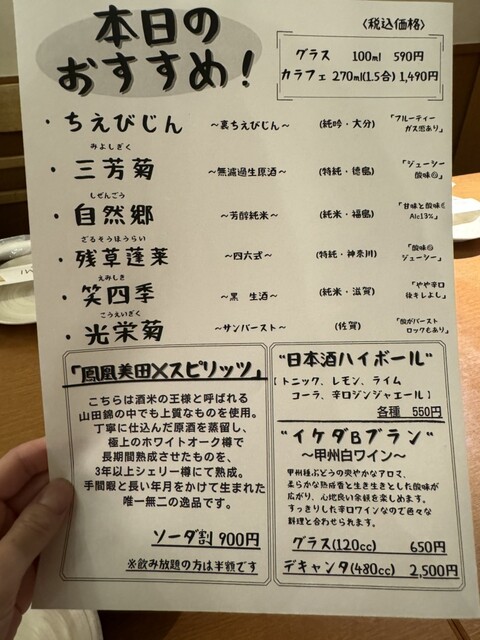 本日の
おすすめ!
〈税込価格〉
グラス 100ml 590円
カラフェ 270ml(1.5合) 1,490円
・ちえびじん ～裏ちえびじん～ (純吟・大分) 「フルーティー
ガス感あり」
みよしぎく
・三芳菊 ～無濾過生原酒～ (特純・徳島) 「ジューシー
酸味◎」
しぜんごう
・自然郷 ～芳醇純米～ (純米・福島) 「甘味と酸味◎
Alc13%」
ざるそうほうらい
・残草蓬莱 ～四六式～ (特純・神奈川) 「酸味◎
ジューシー」
えみしき
・笑四季 ～黒 生酒～ (純米・滋賀) 「やや辛口
後キレよし」
こうえいぎく
・光栄菊 ～サンバースト～ (佐賀) 「酸がバースト
ロックもあり」
「鳳凰美田×スピリッツ」
こちらは酒米の王様と呼ばれる
山田錦の中でも上質なものを使用。
丁寧に仕込んだ原酒を蒸留し、
極上のホワイトオーク樽で
長期間熟成させたものを、
3年以上シェリー樽にて熟成。
手間暇と長い年月をかけて生まれた
唯一無二の逸品です。
ソーダ割 900円
※飲み放題の方は半額です
"日本酒ハイボール"
【トニック、レモン、ライム
コーラ、辛口ジンジャエール】
各種 550円
"イケダBブラン"
～甲州白ワイン～
甲州種ぶどうの爽やかなアロマ、
柔らかな熟成香と生き生きとした酸味が
広がり、心地良い余韻を楽しめます。
すっきりした辛口ワインなので色々な
料理と合わせられます。
グラス(120cc) 650円
デキャンタ(480cc) 2,500円